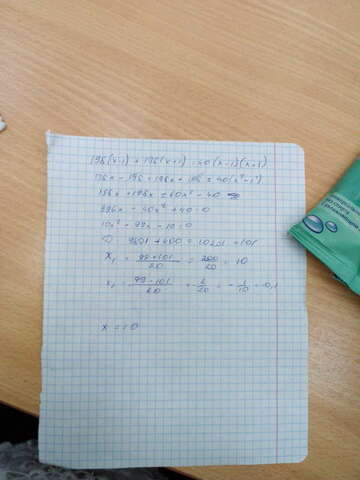 198(x-1) + 198(x+1) = 40(x-1)(x+1)
198x - 198 + 198x + 198 = 40(x²-1²)
198x + 198x = 40x² - 40
396x - 40x² + 40 = 0
10x² - 99x - 10 = 0
D 9801 + 400 = 10201 = 101
x₁ = 99+101/20 = 200/20 = 10
x₂ = 99-101/20 = -2/20 = -1/10 = -0,1
x = 10